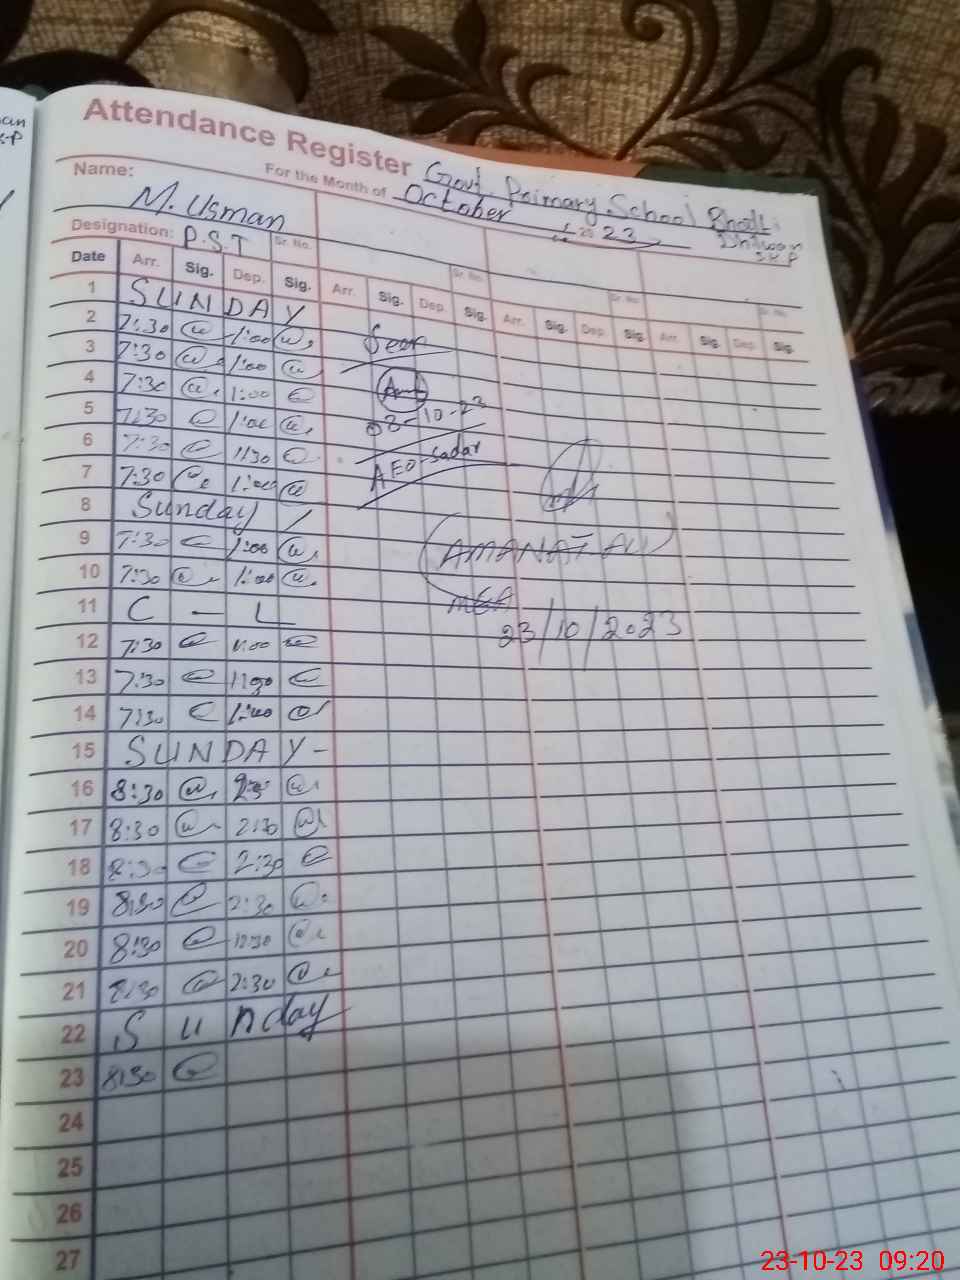 Attendance Register Govt. Primary School Bhatti
For the Month of October 2023
Dhilwan
S.K.P
Name: M. Usman
Designation: P.S.T Sr. No. Sr. No. Sr. No. Sr. No.
Date Arr. Sig. Dep. Sig. Arr. Sig. Dep. Sig. Arr. Sig. Dep. Sig. Arr. Sig. Dep. Sig.
1 SUNDAY
2 7:30 1:00 Seen
3 7:30 1:00
4 7:30 1:00 03-10-23
5 7:30 1:00 AEO-Sadar
6 7:30 11:30
7 7:30 1:00
8 Sunday
9 7:30 1:00 (AMANAT ALI)
10 7:30 1:00 MEA
11 C - L 23/10/2023
12 7:30 1:00
13 7:30 11:30
14 7:30 1:00
15 SUNDAY-
16 8:30 2:30
17 8:30 2:30
18 8:30 2:30
19 8:30 2:30
20 8:30 12:30
21 8:30 2:30
22 Sunday
23 8:30
24
25
26
27
23-10-23 09:20